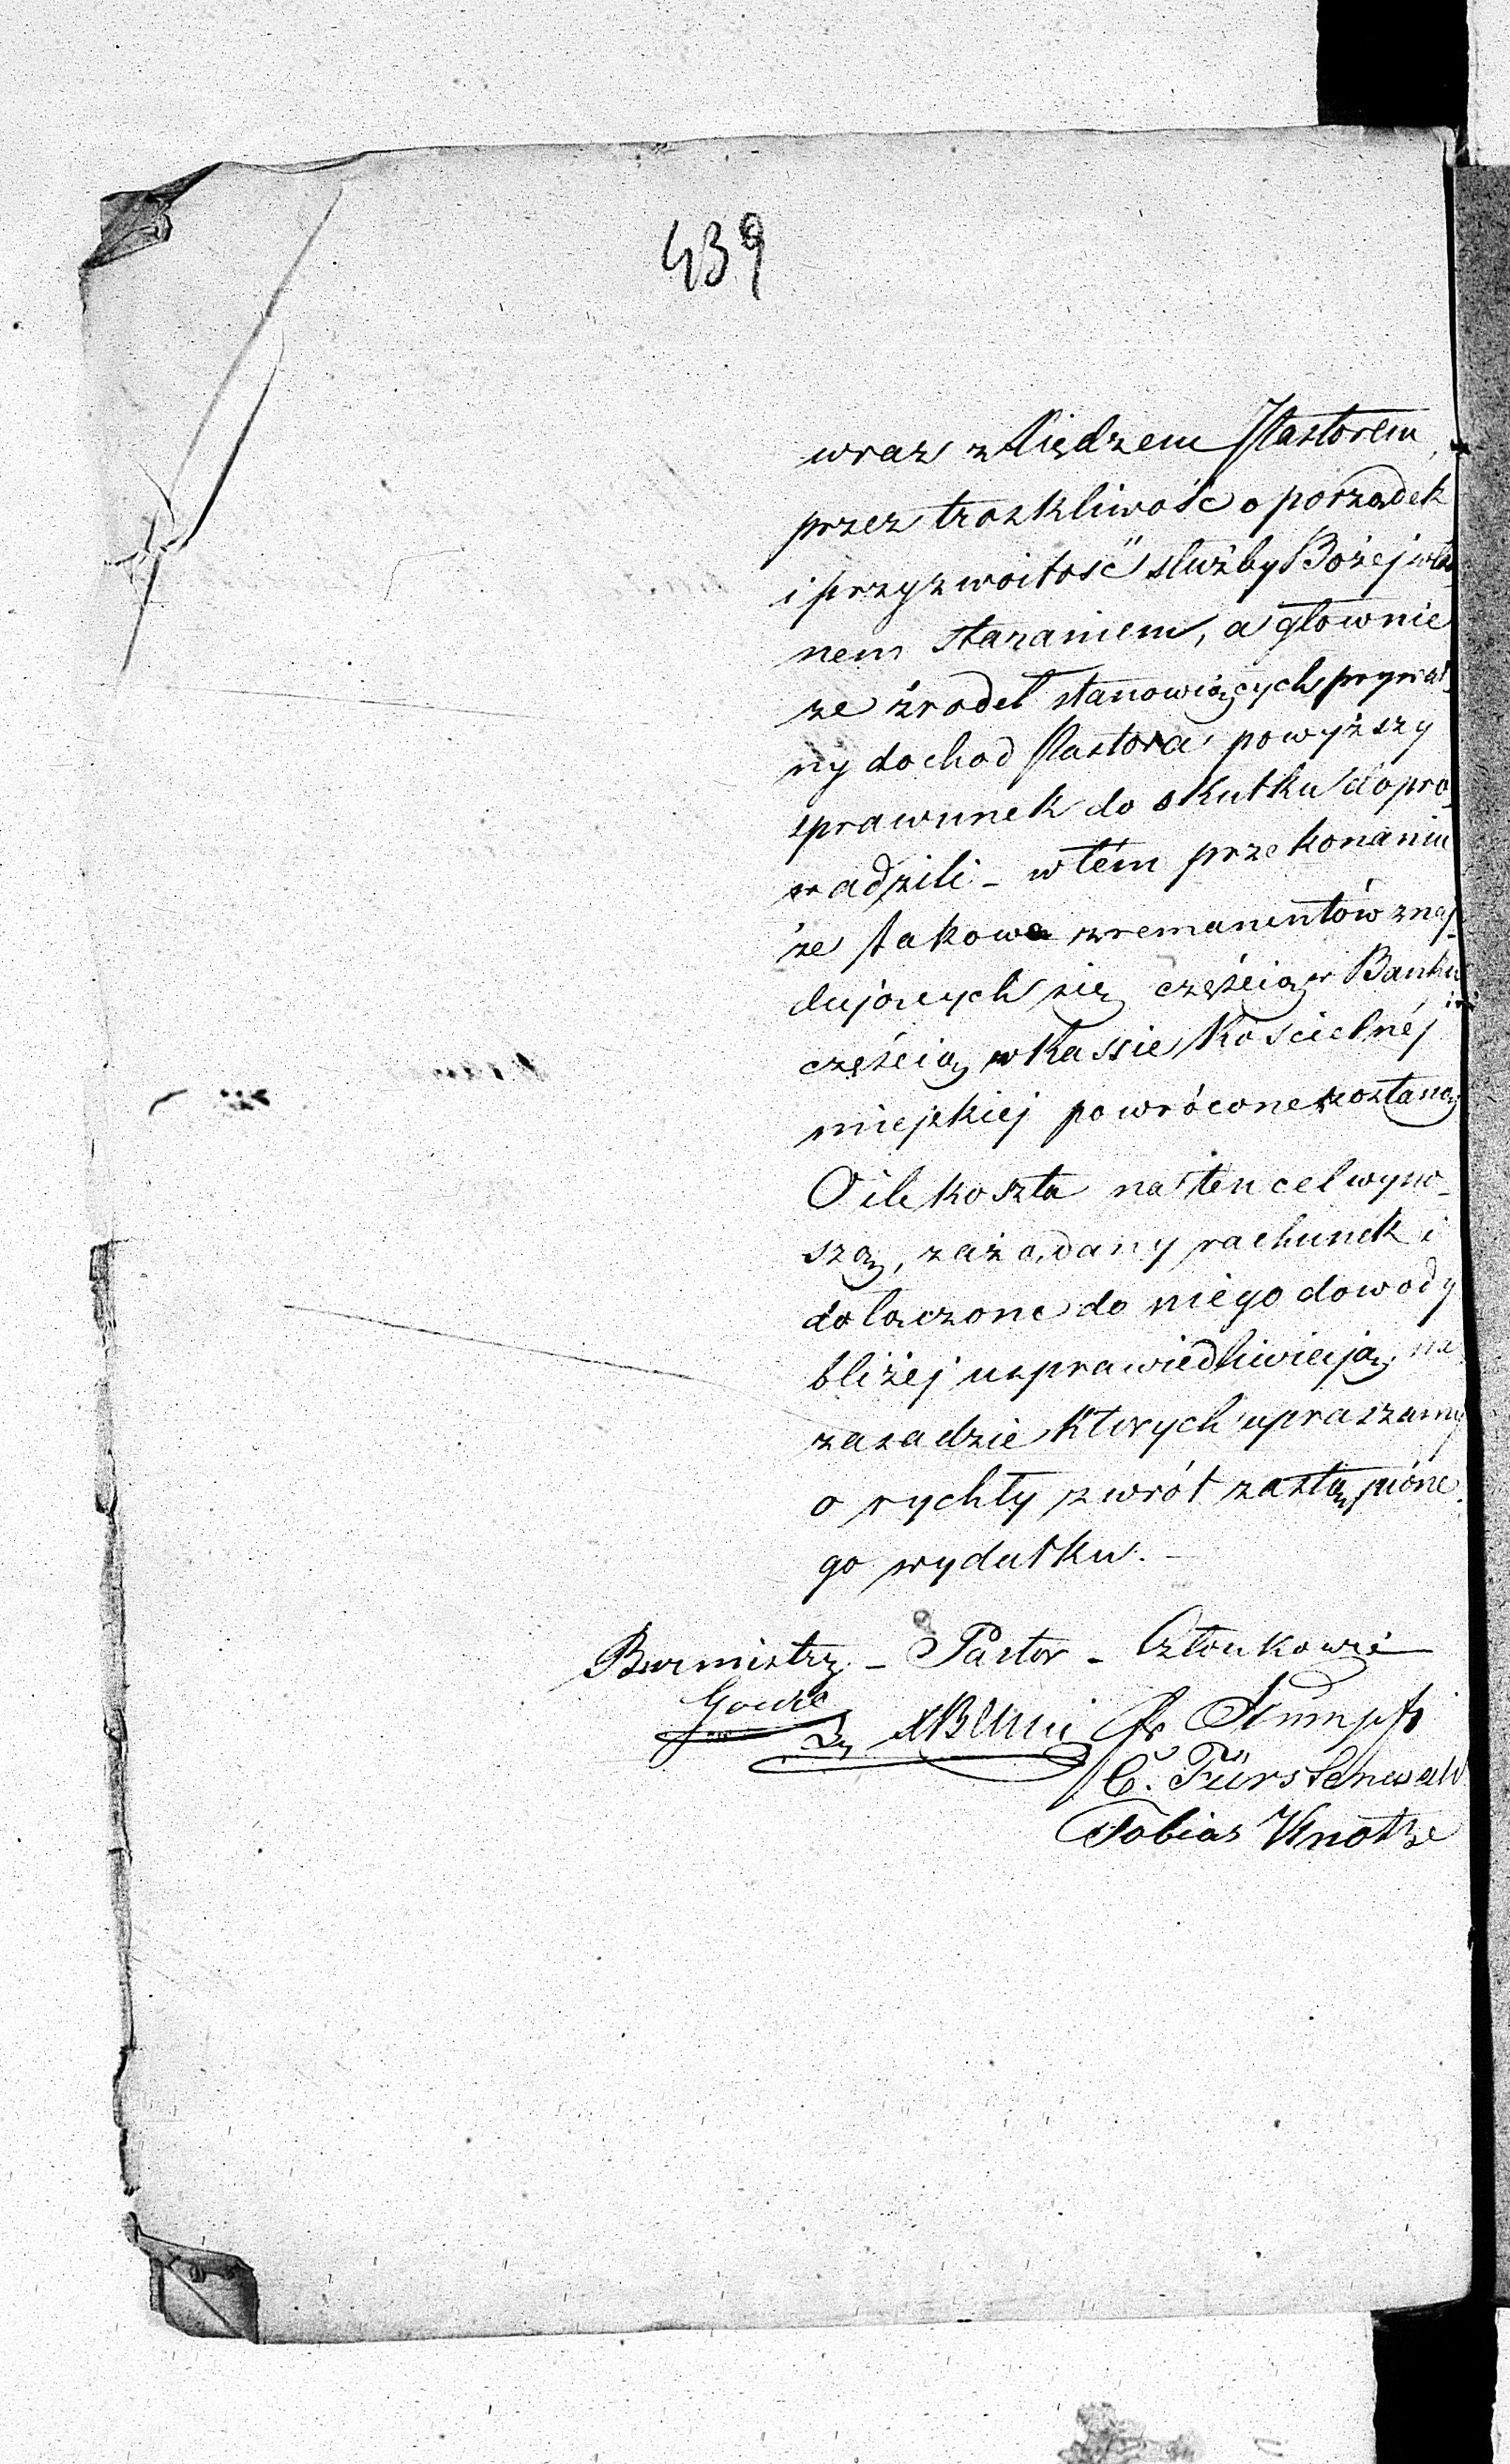 439
wraz z Xiędzem Pastorem,
przez troskliwość o porządek
i przyzwoitość służby Bożej wła-
nem staraniem, a głownie
ze źrodeł stanowiących prywat-
ny dochod Pastora powyższy
sprawunek do skutku dopro-
wadzili - w tém przekonaniu
że takowe z remanentów znaj-
dujących się częścią w Banku
częścią w Kassie Kościelnéj
miejskiej powrócone zostaną
O ile koszta na ten cel wyno-
szą, zażądany rachunek i
dołączone do niego dowody
bliżej usprawiedliwieją, na
zasadzie ktorych upraszamy
o rychły zwrót zastąpióne-
go wydatku. -
Burmistrz - Pastor - Członkowie
Stumpf
C. Fürstenwald
Tobias Knothe